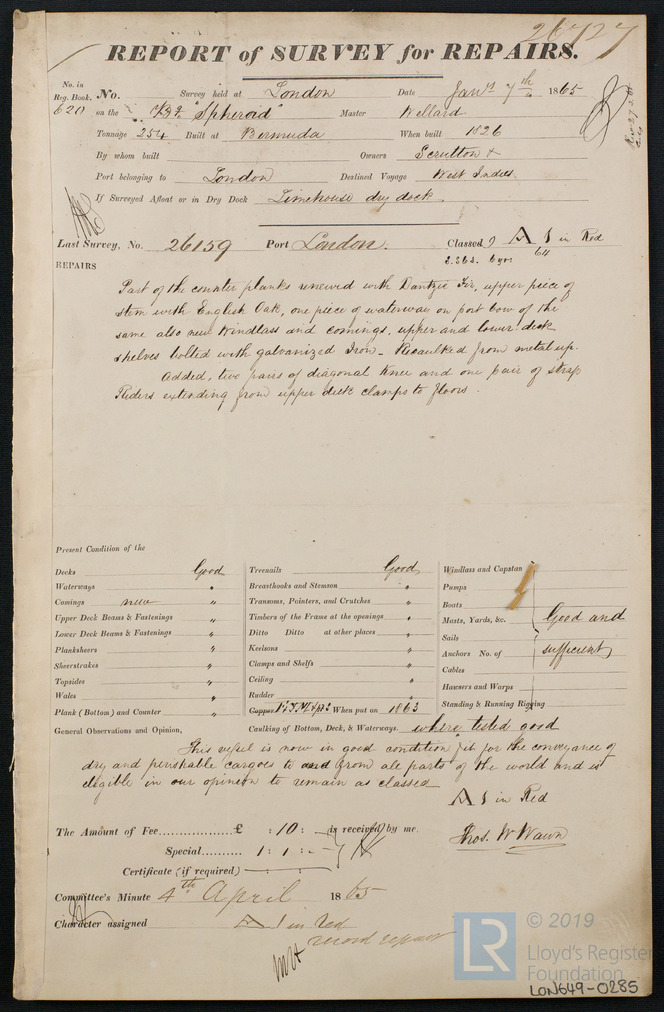 26727
REPORT of SURVEY for REPAIRS.
No. in Reg. Book. No. Survey held at London Date Jany 7th 1865
620 on the "Spheroid" Master Wellard
Tonnage 254 Built at Bermuda When built 1826
By whom built Owners Scrutton &
Port belonging to London Destined Voyage West Indies
If Surveyed Afloat or in Dry Dock Limehouse dry dock
Last Survey, No. 26159 Port London. Classed 9 A 1 in Red
6 yrs 64
REPAIRS
Part of the counter planks renewed with Dantzic Fir, upper piece of
stem with English Oak, one piece of waterway on port bow of the
same also new Windlass and comings, upper and lower deck
shelves bolted with galvanized Iron - Recaulked from metal up.
Added, two pairs of diagonal knee and one pair of strap
Riders extending from upper deck clamps to floors.
Present Condition of the
Decks Good
Waterways "
Comings new "
Upper Deck Beams & Fastenings "
Lower Deck Beams & Fastenings "
Planksheers "
Sheerstrakes "
Topsides "
Wales "
Plank (Bottom) and Counter "
Treenails Good
Breasthooks and Stemson "
Transoms, Pointers, and Crutches "
Timbers of the Frame at the openings "
Ditto Ditto at other places "
Keelsons "
Clamps and Shelfs "
Ceiling "
Rudder "
Copper When put on 1863
Windlass and Capstan
Pumps
Boats
Masts, Yards, &c. Good and
Sails
Anchors No. of sufficient
Cables
Hawsers and Warps
Standing & Running Rigging
General Observations and Opinion, Caulking of Bottom, Deck, & Waterways. where tested good
This vessel is now in good condition fit for the conveyance of
dry and perishable cargoes to and from all parts of the world and is
eligible in our opinion to remain as classed
A 1 in Red
The Amount of Fee £ : 10 : - is received by me.
Special 1 : 1 : -
Thos. W Wawn
Certificate (if required)
Committee's Minute 4th April 1865
Character assigned A 1 in Red
record repair
© 2019
LR Lloyd's Register
Foundation
LON649-0285